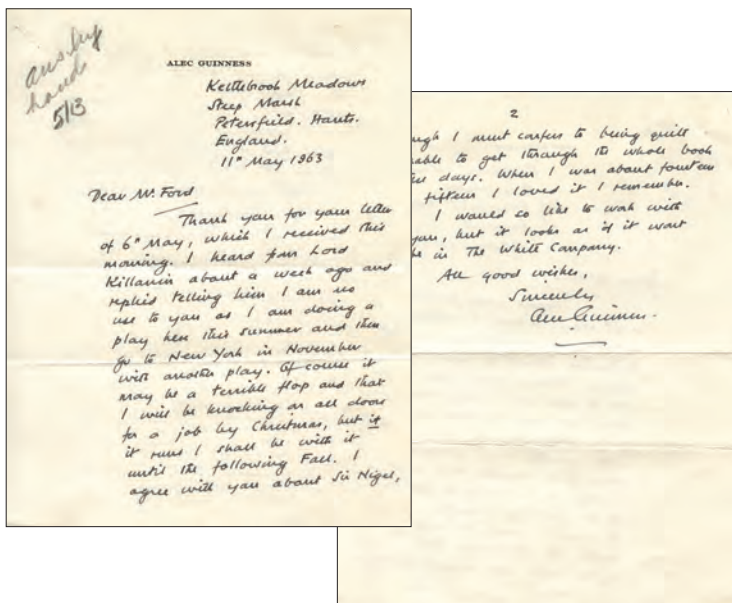 ans by
hand
5/13
ALEC GUINNESS
Kettlebrook Meadows
Steep Marsh
Petersfield. Hants.
England.
11th May 1963
Dear Mr. Ford
Thank you for your letter
of 6th May, which I received this
morning. I heard from Lord
Killanin about a week ago and
replied telling him I am no
use to you as I am doing a
play here this summer and then
go to New York in November
with another play. Of course it
may be a terrible flop and that
I will be knocking on all doors
for a job by Christmas, but if
it runs I shall be with it
until the following Fall. I
agree with you about Sir Nigel,
2
I must confess to being quite
to get through the whole book
days. When I was about fourteen
fifteen I loved it I remember.
I would so like to work with
you, but it looks as if it wont
in The White Company.
All good wishes,
Sincerely
Alec Guinness.